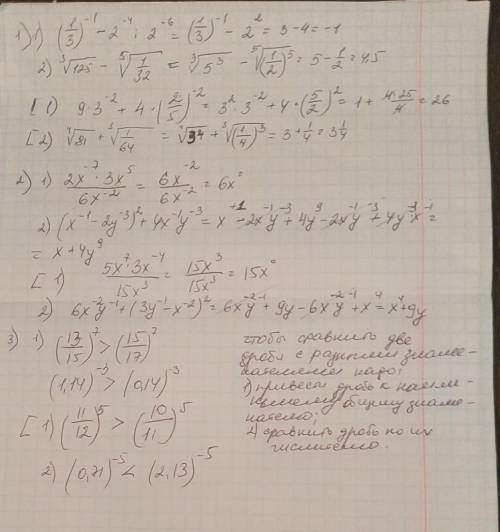 1) 1) (1/3)^-1 - 2^-4 : 2^-6 = (1/3)^-1 - 2^2 = 3-4 = -1
2) ∛125 - ⁵√(1/32) = ∛5^3 - ⁵√(1/2)^5 = 5 - 1/2 = 4.5
[ 1) 9·3^-2 + 4·(2/5)^-2 = 3^2·3^-2 + 4·(5/2)^2 = 1 + 4·25/4 = 26
[ 2) ⁴√81 + ³√(1/64) = ⁴√3^4 + ³√(1/4)^3 = 3 + 1/4 = 3 1/4
2) 1) 2x^-7·3x^5/6x^-2 = 6x^-2/6x^-2 = 6x^0
2) (x^-1 - 2y^-3)^2 + 4x^-1y^-3 = x^+1 - 2x^-1y^-3 + 4y^9 - 2x^-1y^-3 + 4y^-3x^-1 =
= x + 4y^9
[ 1) 5x^7·3x^-4/15x^3 = 15x^3/15x^3 = 15x^0
2) 6x^-2y^-1 + (3y^-1 - x^-2)^2 = 6x^-2y^-1 + 9y - 6x^-2y^-1 + x^4 = x^4 + 9y
3) 1) (13/15)^7 > (15/17)^7
(1,14)^-3 > (0,14)^-3
[ 1) (11/12)^5 > (10/11)^5
2) (0,71)^-5 < (2,13)^-5
чтобы сравнить две
дроби с разными знаме-
нателями надо:
1) привести дробь к наиме-
ньшему общему знаме-
нателю;
2) сравнить дробь по их
числителю.